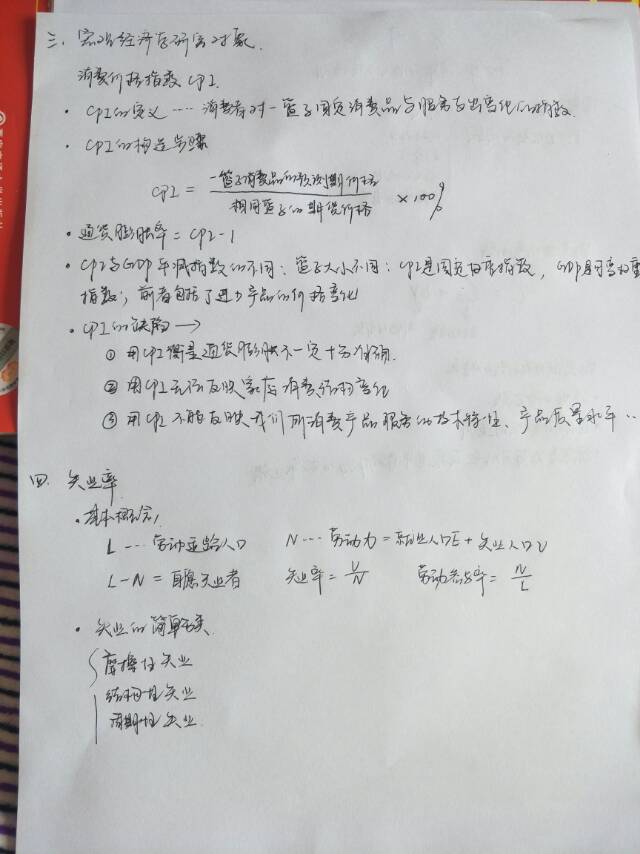 三、宏观经济学研究对象.
消费价格指数 CPI.
· CPI的定义 ···· 消费者对一篮子固定消费品与服务支出变化的指数.
· CPI的构造步骤
CPI = 一篮子消费品的预测期价格 / 相同篮子的期价格 × 100%
· 通货膨胀率 = CPI-1
· CPI与GDP平减指数的不同: 篮子大小不同: CPI是固定权重指数, GDP是可变权重
指数; 前者包括了进口产品的价格变化
· CPI的缺陷 →
① 用CPI衡量通货膨胀不一定十分准确.
② 用CPI无法反映家庭消费结构变化
③ 用CPI不能反映我们所消费产品服务的技术特性、产品质量水平 ··
四. 失业率
· 基本概念
L ··· 劳动适龄人口 N ··· 劳动力 = 就业人口E + 失业人口U
L-N = 自愿失业者 失业率 = U/N 劳动参与率 = N/L
· 失业的简单分类
摩擦性失业
结构性失业
周期性失业